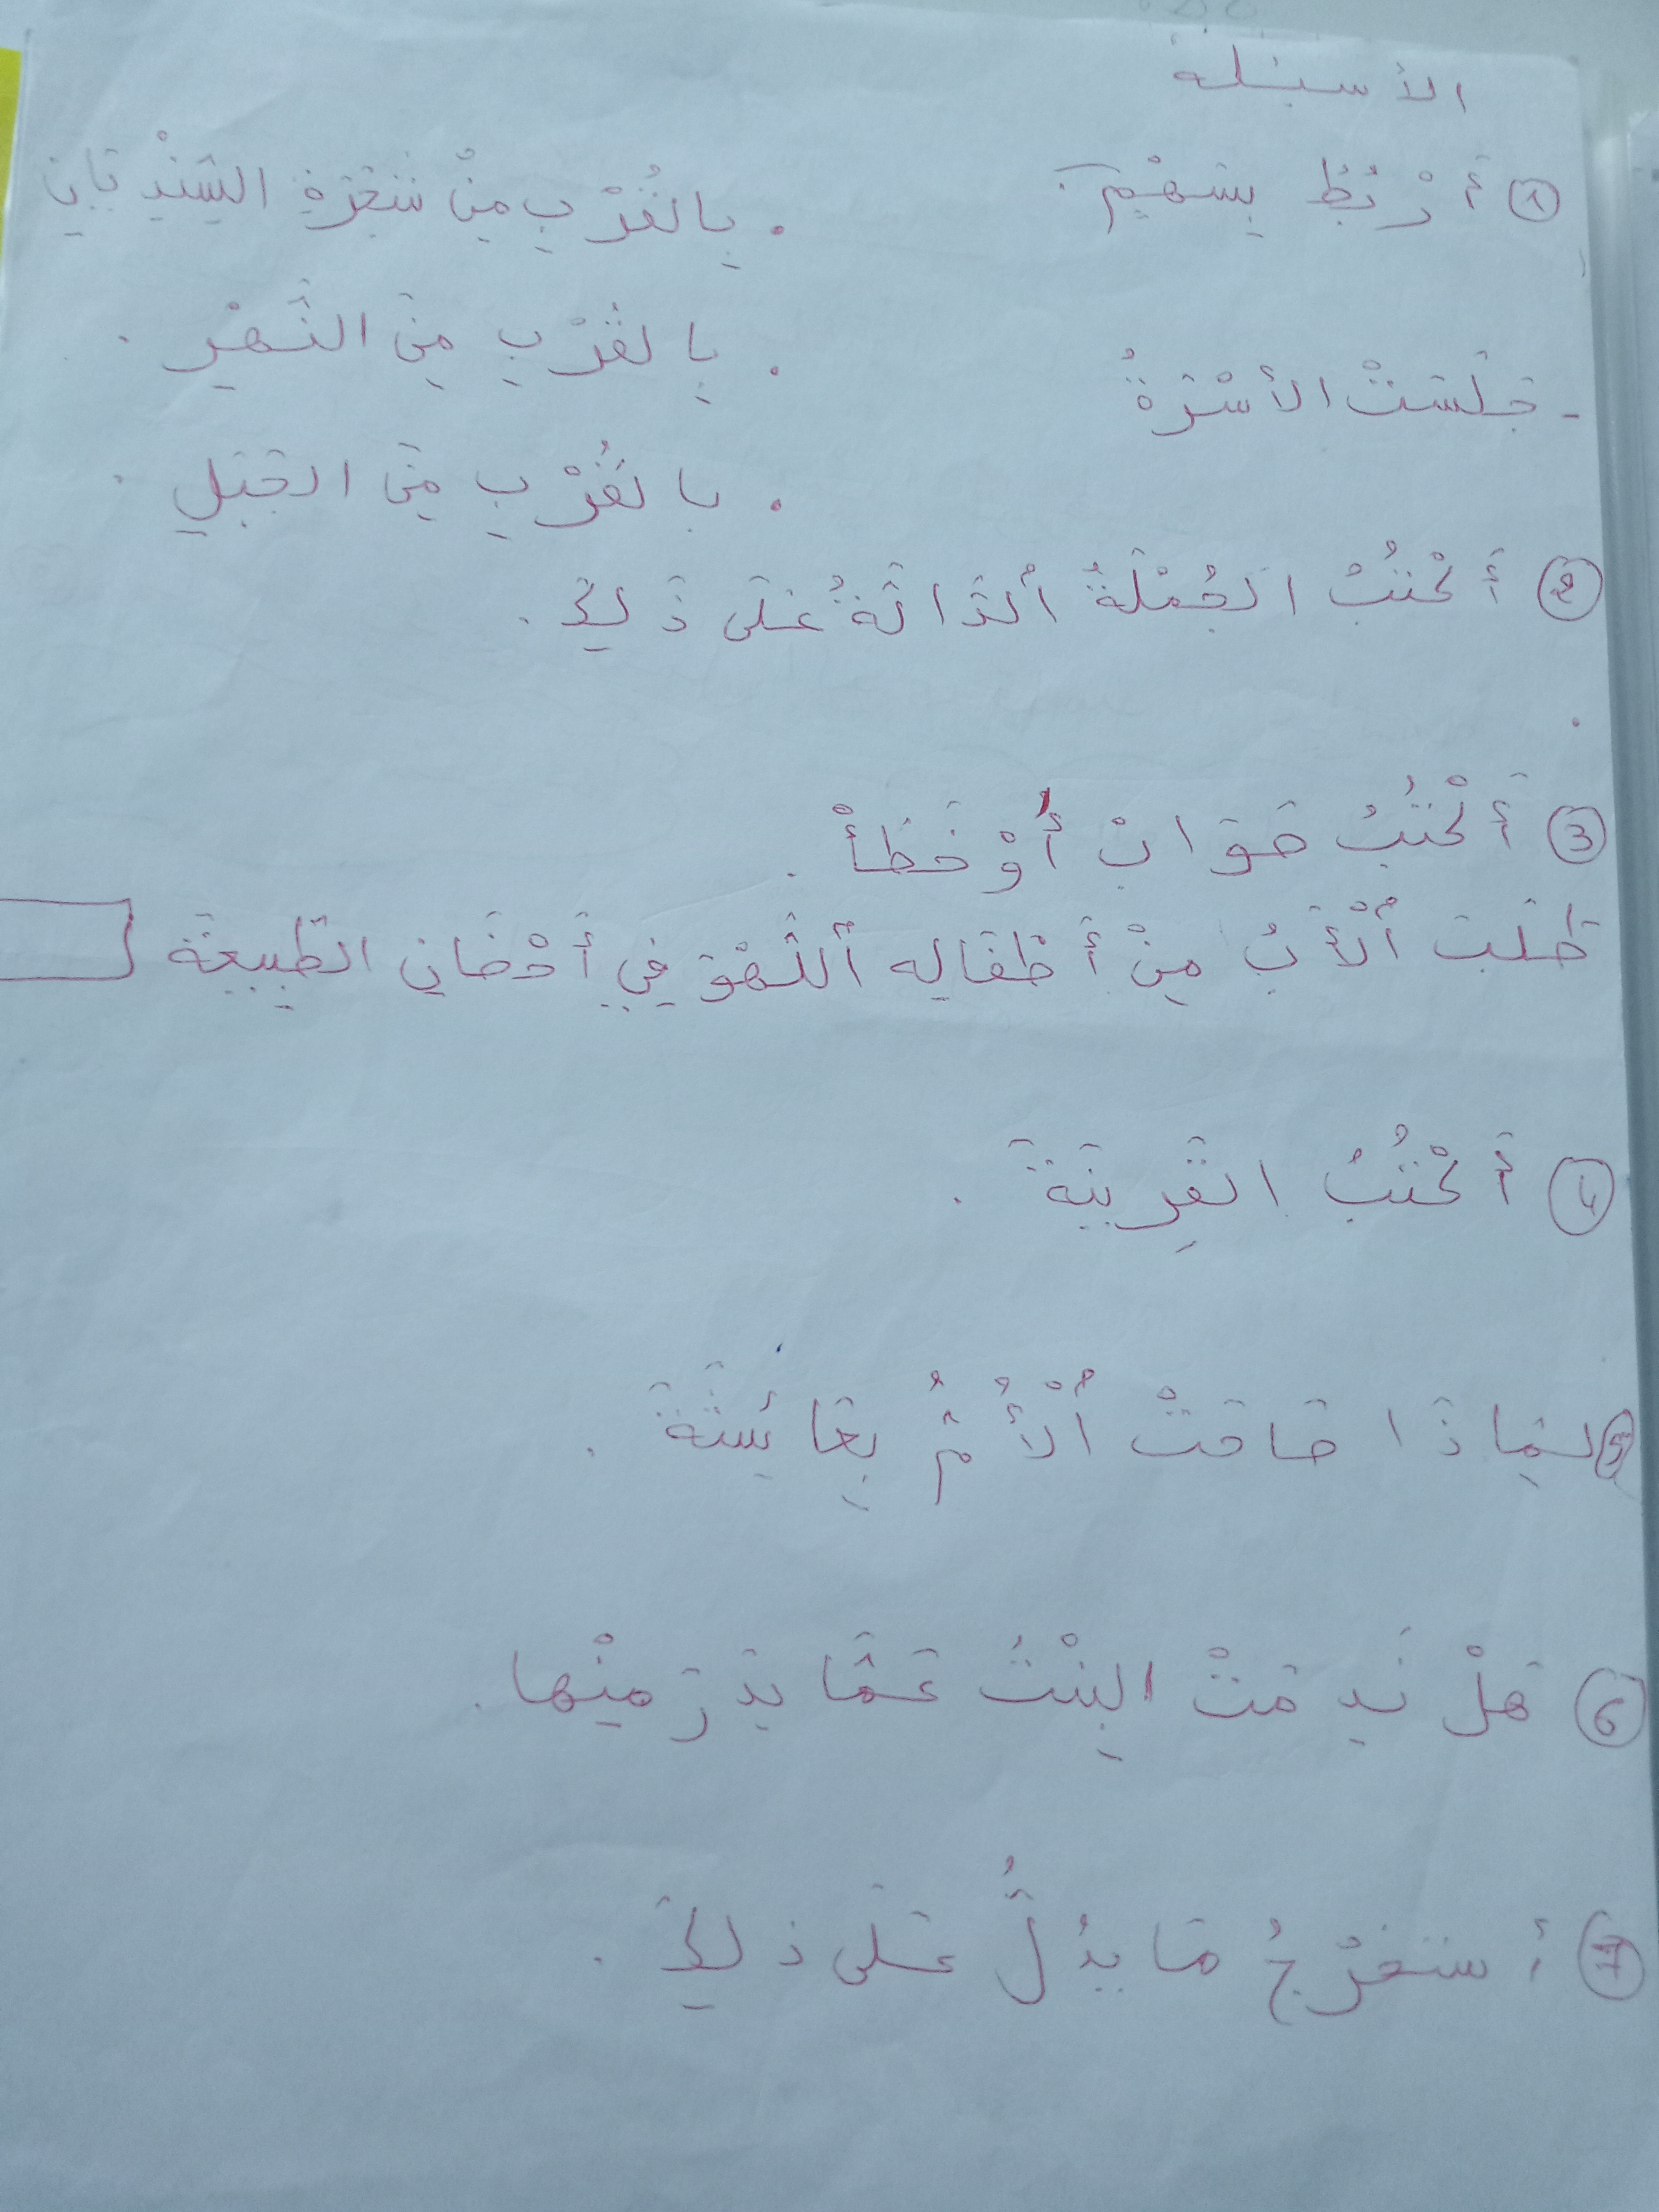 الأسئلة
① أَرْبُطُ بِسَهْمٍ :
. بِالقُرْبِ مِنْ شَجَرَةِ السِّنْدِيَانِ
. بِالقُرْبِ مِنَ النَّهْرِ .
- جَلَسَتْ الأُسْرَةُ
. بالقُرْبِ مِنَ الجَبَلِ .
② أَكْتُبُ الجُمْلَةُ اُلدَّالَةُ عَلَى ذَلِكَ .
.
③ أَكْتُبُ صَوَابْ أَوْ خَطَأْ .
طَلَبَ اُلْأَبُ مِنْ أَطْفَالِه اَللَّهْوَ فِي أَحْضَانِ الطَّبِيعَة
④ أَكْتُبُ القَرِينَةَ .
⑤ لِمَاذَا ضَاقَتْ اُلْأُمُّ بِعَائِشَةَ .
⑥ هَلْ نَدِمَتْ البِنْتُ عَمَّا بَدَرَ مِنْها .
⑦ أستخرجُ مَا يَدُلُّ عَلَى ذلِكَ .